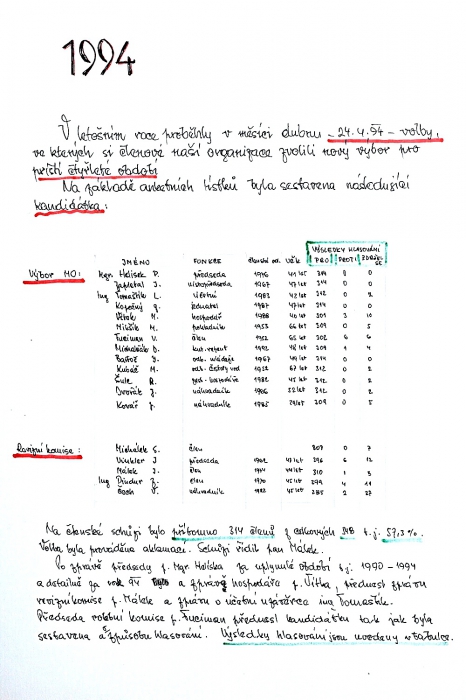 1994
V letošním roce proběhly v měsíci dubnu - 24.4.94 - volby,
ve kterých si členové naší organizace zvolili nový výbor pro
příští čtyřleté období
Na základě anketních lístků byla sestavena následující
kandidátka:
VÝSLEDKY HLASOVÁNÍ
JMÉNO FUNKCE členství od. VĚK PRO PROTI ZDRŽEL SE
Výbor MO: Mgr. Holíšek P. předseda 314 0 0
Zapletal J. místopředseda 1967 47 let 314 0 0
Ing Tomaštík L. účetní 1983 42 let 312 0 2
Kopečný jednatel 1987 47 let 312 0 2
Vítek M. hospodář 1988 40 let 301 3 10
Milčík M. pokladník 1953 66 let 309 0 5
Furiman V. člen 1952 65 let 302 6 6
Michálek kult. referent 309 1 4
J. 1967 49 let 314 0 0
Kubáč M. 67 let 312 0 2
Šule R. 1982 45 let 312 0 2
Dvořák J. náhradník 312 0 2
Kovář J. náhradník 1985 309 0 5
Revizní komise: Michálek S. člen 307 0 7
Winkler J předseda 47 let 296 6 12
Málek J. člen 310 1 3
Ing člen 45 let 299 4 11
Čech V. náhradník 45 let 285 2 27
Na členské schůzi bylo přítomno 314 členů z celkových 548 t.j. 57,3 %.
Volba byla prováděna aklamací. Schůzi řídil pan Málek.
Po zprávě předsedy p. Mgr. Holíška za uplynulé období t.j. 1990 - 1994
a detailně za rok 94 a zprávě hospodáře p. Vítka, přednesl zprávu
revizní komise p. Málek a zprávu o účetní uzávěrce ing Tomaštík.
Předseda volební komise p. Furiman přednesl kandidátku tak jak byla
sestavena a způsobu hlasování. Výsledky hlasování jsou uvedeny v tabulce.